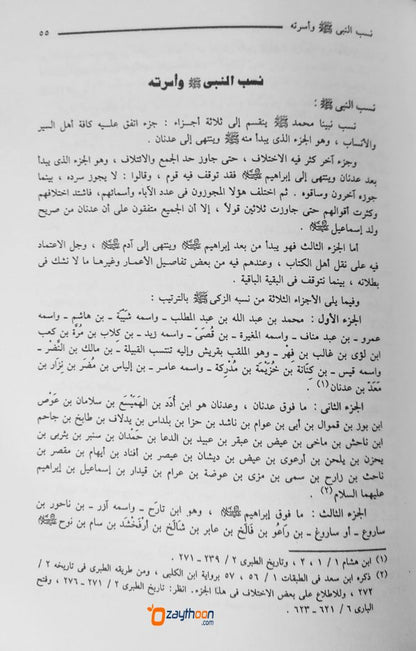 نسب النبى ﷺ وأسرته ٥٥
نسب النبى ﷺ وأسرته
نسب النبى ﷺ :
نسب نبينا محمد ﷺ ينقسم إلى ثلاثة أجزاء : جزء اتفق عليه كافة أهل السير
والأنساب ، وهو الجزء الذى يبدأ منه ﷺ وينتهى إلى عدنان .
وجزء آخر كثر فيه الاختلاف ، حتى جاوز حد الجمع والائتلاف ، وهو الجزء الذى يبدأ
بعد عدنان وينتهى إلى إبراهيم ﷺ فقد توقف فيه قوم ، وقالوا : لا يجوز سرده ، بينما
جوزه آخرون وساقوه . ثم اختلف هؤلاء المجوزون فى عدد الآباء وأسمائهم، فاشتد اختلافهم
وكثرت أقوالهم حتى جاوزت ثلاثين قولاً ، إلا أن الجميع متفقون على أن عدنان من صريح
ولد إسماعيل ﷺ .
أما الجزء الثالث فهو يبدأ من بعد إبراهيم ﷺ وينتهى إلى آدم ﷺ ، وجل الاعتماد
فيه على نقل أهل الكتاب ، وعندهم فيه من بعض تفاصيل الأعمار وغيرها ما لا نشك فى
بطلانه ، بينما نتوقف فى البقية الباقية .
وفيما يلى الأجزاء الثلاثة من نسبه الزكى ﷺ بالترتيب :
الجزء الأول : محمد بن عبد الله بن عبد المطلب ـ واسمه شَيْبَة ـ بن هاشم ـ واسمه
عمرو ـ بن عبد مناف ـ واسمه المغيرة ـ بن قُصَىّ ـ واسمه زيد ـ بن كِلاب بن مُرَّة بن كعب
ابن لؤى بن غالب بن فِهْر ـ وهو الملقب بقريش وإليه تنتسب القبيلة ـ بن مالك بن النَّضْر ـ
واسمه قيس ـ بن كِنَانة بن خُزَيْمَة بن مُدْرِكة ـ واسمه عامر ـ بن إلياس بن مُضَر بن نِزَار بن
مَعَدّ بن عدنان (١) .
الجزء الثانى : ما فوق عدنان ، وعدنان هو ابن أُدَد بن الهَمَيْسَع بن سلامان بن عَوْص
ابن بوز بن قموال بن أبى بن عوام بن ناشد بن حزا بن بلداس بن يدلاف بن طابخ بن جاحم
ابن ناحش بن ماخى بن عيض بن عبقر بن عبيد بن الدعا بن حَمْدان بن سنبر بن يثربى بن
يحزن بن يلحن بن أرعوى بن عيض بن ديشان بن عيصر بن أفناد بن أيهام بن مقصر بن
ناحث بن زارح بن سمى بن مزى بن عوضة بن عرام بن قيدار بن إسماعيل بن إبراهيم
عليهما السلام (٢) .
الجزء الثالث : ما فوق إبراهيم ﷺ ، وهو ابن تارَح ـ واسمه آزر ـ بن ناحور بن
ساروع ـ أو ساروغ ـ بن رَاعُو بن فَالَخ بن عابر بن شَالَخ بن أرْفَخْشَد بن سام بن نوح ﷺ
(١) ابن هشام ١ / ١ ، ٢ ، وتاريخ الطبرى ٢ / ٢٣٩ ـ ٢٧١ .
(٢) ذكره ابن سعد فى الطبقات ١ / ٥٦ ، ٥٧ برواية ابن الكلبى ، ومن طريقه الطبرى فى تاريخه ٢ /
٢٧٢ ، وللاطلاع على بعض الاختلاف فى هذا الجزء. انظر: تاريخ الطبرى ٢ / ٢٧١ ـ ٢٧٦، وفتح
البارى ٦ / ٦٢١ ـ ٦٢٣ .
Ozaythoon
.com